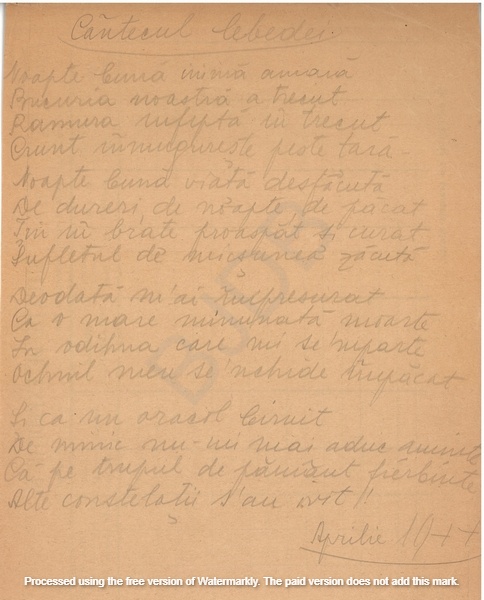 Cântecul lebedei
Noapte bună inimă amară
Bucuria noastră a trecut
Ramura înfiptă în trecut
Crunt înmugurește peste țară
Noapte bună viață desfăcută
De dureri, de noapte, de păcat
Țin în brațe proaspăt și curat
Sufletul de zăcută
Deodată m'ai împresurat
Ca o mare minunată moarte
In odihna care mi se'mparte
Ochiul meu se'nchide împăcat
Și ca un oracol biruit
De nimic nu-mi mai aduc aminte
Că pe trupul de pământ fierbinte
Alte constelații s'au ivit!!
Aprilie 1944
Processed using the free version of Watermarkly. The paid version does not add this mark.